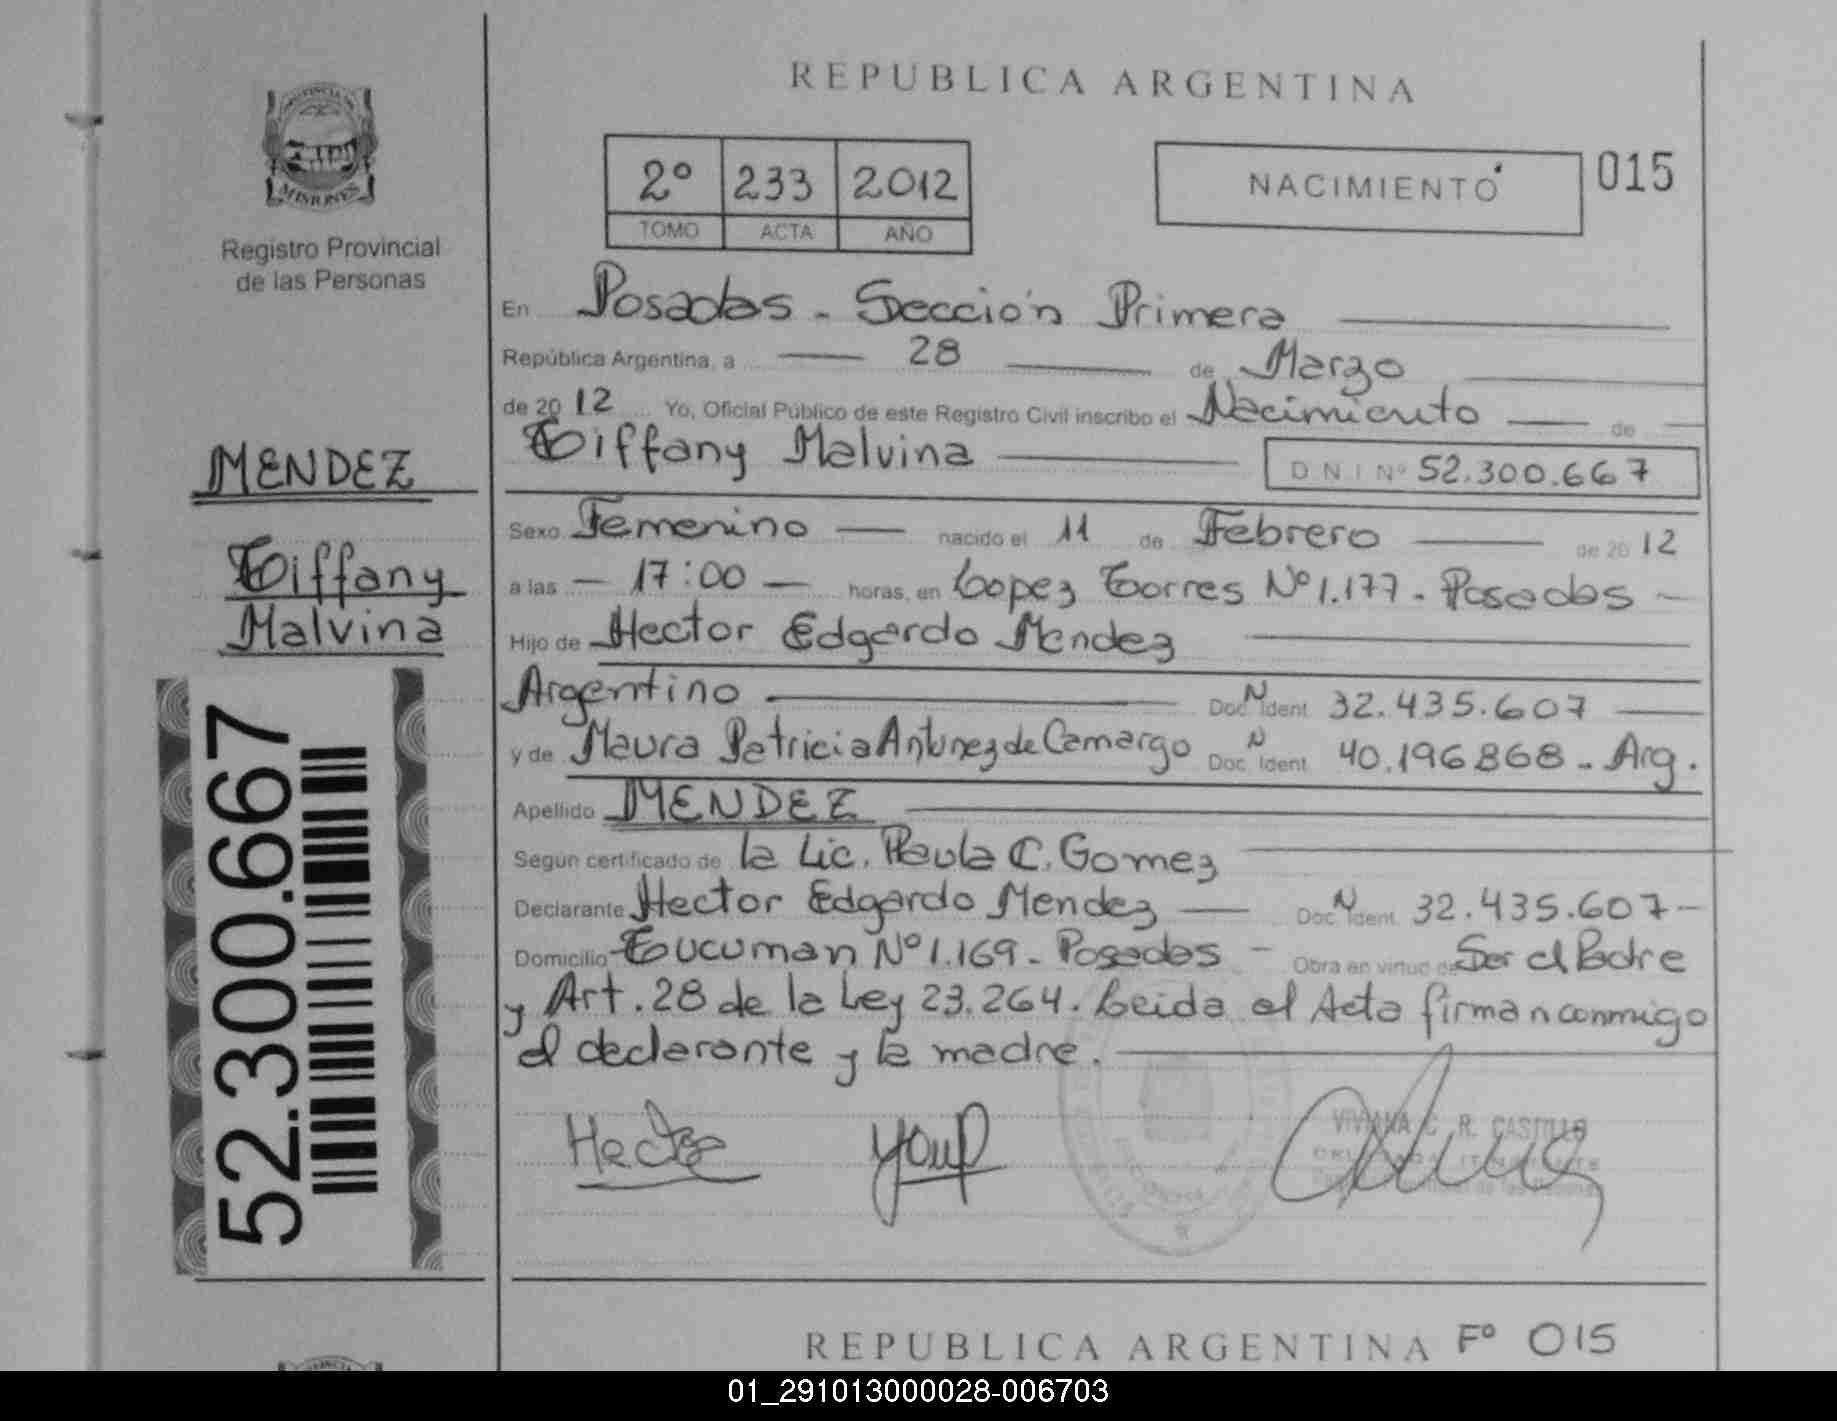 REPUBLICA ARGENTINA
PROVINCIA DE
MISIONES
Registro Provincial
de las Personas
2º 233 2012
TOMO ACTA AÑO
NACIMIENTO 015
En Posadas - Sección Primera
República Argentina, a 28 de Marzo
de 2012 Yo, Oficial Público de este Registro Civil inscribo el Nacimiento de
Tiffany Malvina DNI Nº 52.300.667
MENDEZ
Tiffany
Malvina
Sexo Femenino nacido el 11 de Febrero de 2012
a las 17:00 horas, en Lopez Torres Nº 1.177 - Posadas
Hijo de Hector Edgardo Mendez
Argentino Doc. N Ident. 32.435.607
y de Maura Patricia Antunez de Camargo Doc. N Ident. 40.196868 - Arg.
Apellido MENDEZ
Según certificado de la Lic. Paula C. Gomez
Declarante Hector Edgardo Mendez Doc. N Ident. 32.435.607
Domicilio Tucuman Nº 1.169 - Posadas - Obra en virtud de Ser el Padre
y Art. 28 de la Ley 23.264. Leida el Acta firman conmigo
el declarante y la madre.
52.300.667
Hector
VIVIANA C. R. CASTILLO
REPUBLICA ARGENTINA Fº 015
01_291013000028-006703